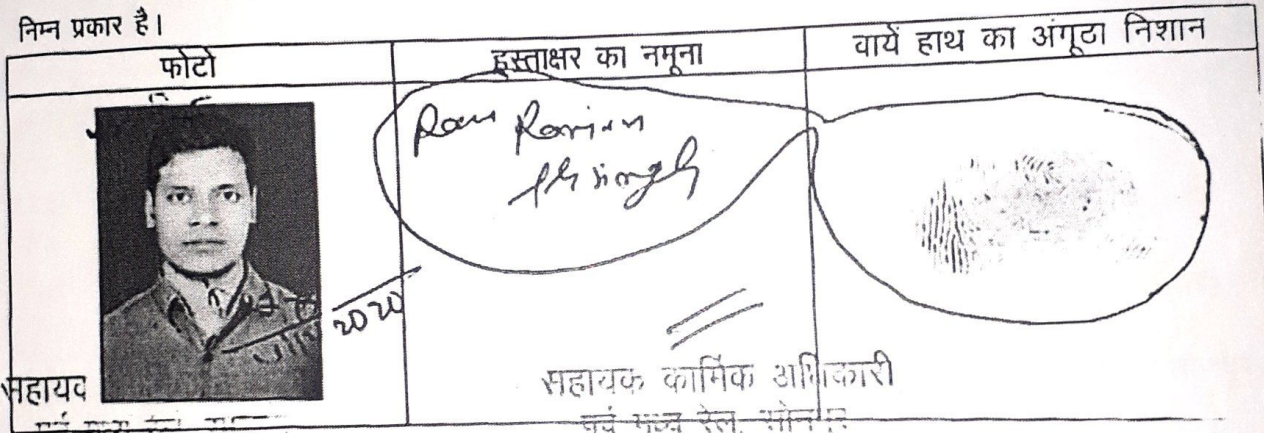 निम्न प्रकार है।
फोटो
हस्ताक्षर का नमूना
वायें हाथ का अंगूठा निशान
Ranjan
Singh
2020
सहायक
सहायक कार्मिक अधिकारी
पूर्व मध्य रेल, सोनपुर